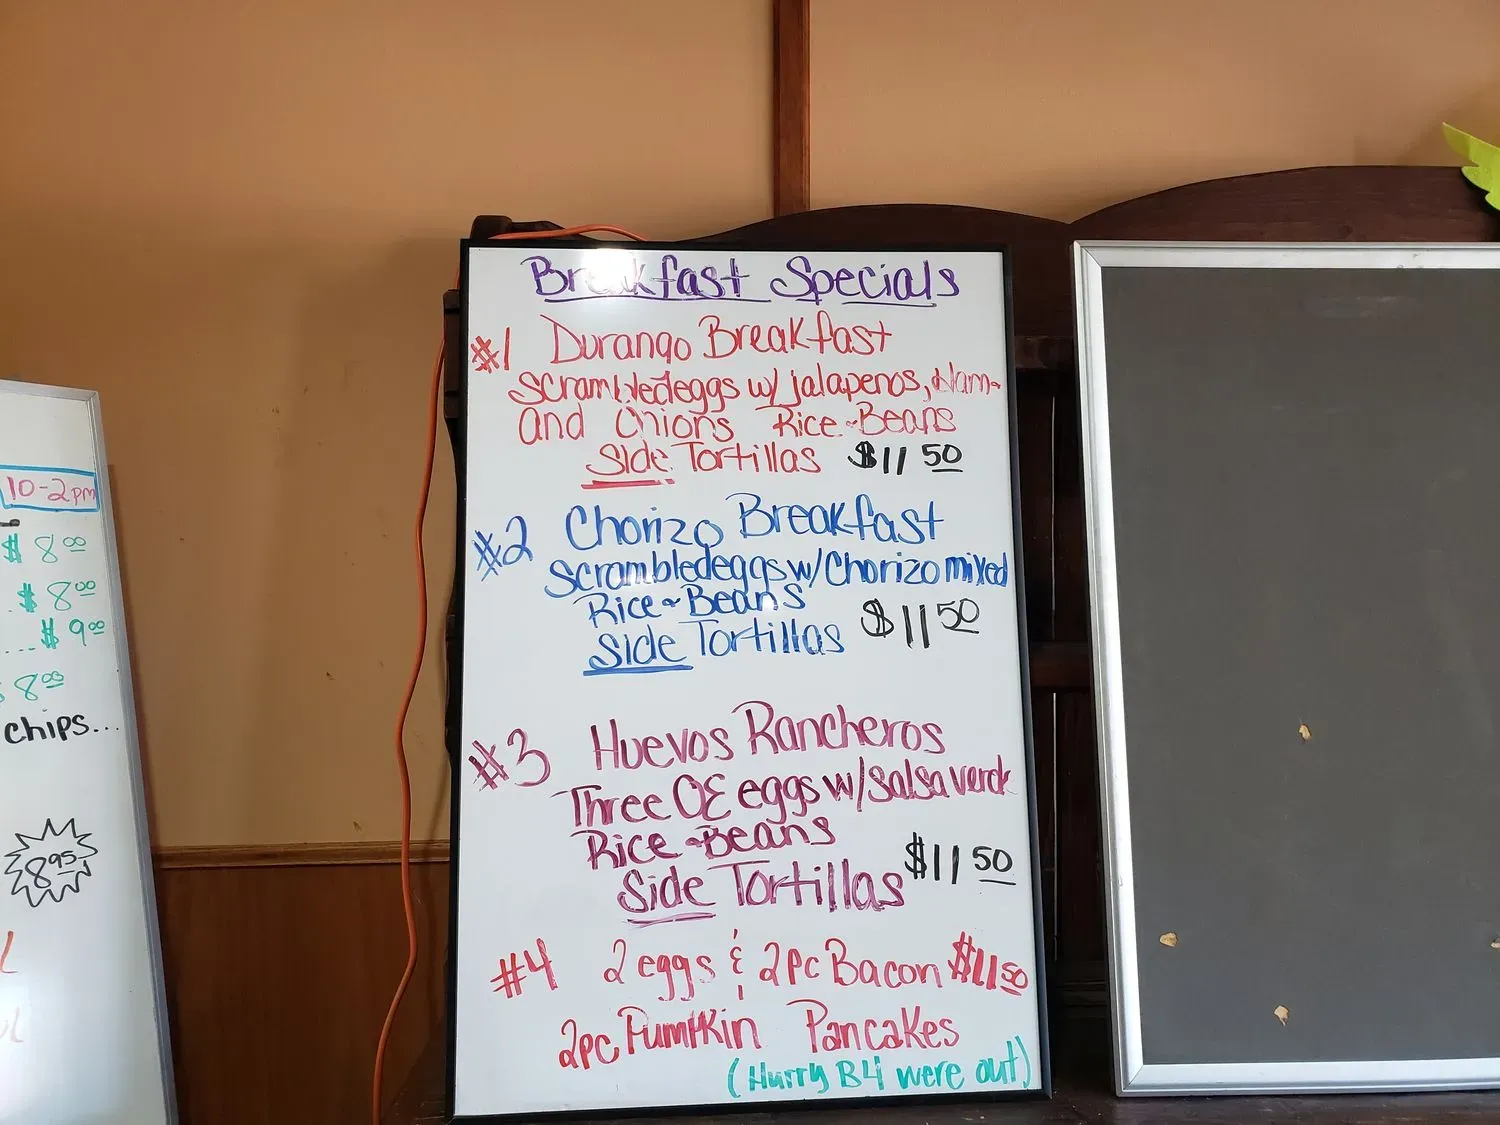 Breakfast Specials
#1 Durango Breakfast
Scrambledeggs w/ jalapenos, Ham
and Onions Rice - Beans
Side Tortillas $11 50
#2 Chorizo Breakfast
Scrambledeggs w/ Chorizo mixed
Rice - Beans
Side Tortillas $11 50
#3 Huevos Rancheros
Three OE eggs w/ Salsa verde
Rice - Beans
Side Tortillas $11 50
#4 2 eggs & 2pc Bacon $11 50
2pc Pumpkin Pancakes
(Hurry B4 were out)
10-2pm
$ 8 00
$ 8 00
...$ 9 00
$ 8 00
chips...
8 95